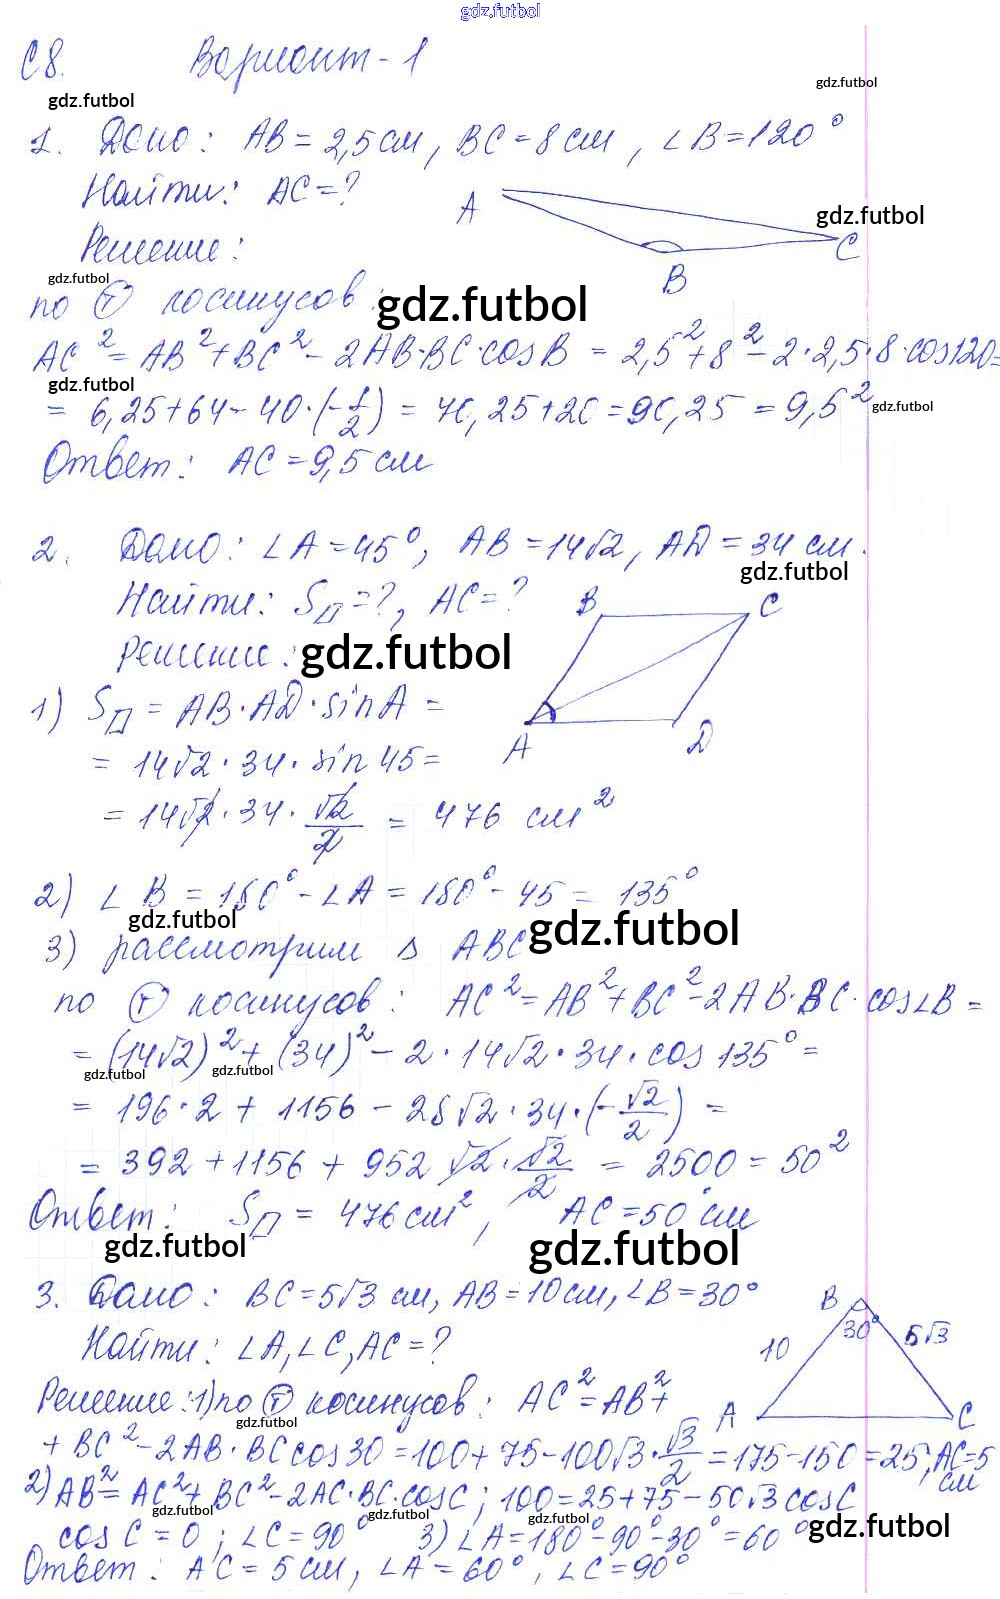 gdz.futbol
С8. Вариант-1
gdz.futbol gdz.futbol
1. Дано: AB = 2,5 см, BC = 8 см, ∠B = 120°
Найти: AC = ?
A gdz.futbol
Решение: C
gdz.futbol B
по Ⓣ косинусов: gdz.futbol
AC² = AB² + BC² - 2AB·BC·cosB = 2,5² + 8² - 2·2,5·8·cos120 =
gdz.futbol
= 6,25 + 64 - 40·(-1/2) = 70,25 + 20 = 90,25 = 9,5² gdz.futbol
Ответ: AC = 9,5 см
2. Дано: ∠A = 45°, AB = 14√2, AD = 34 см.
gdz.futbol
Найти: S▱ = ?, AC = ? B C
Решение: gdz.futbol
1) S▱ = AB·AD·sinA =
A D
= 14√2·34·sin45 =
= 14√2·34·√2/2 = 476 см²
2) ∠B = 180° - ∠A = 180° - 45 = 135°
gdz.futbol gdz.futbol
3) рассмотрим Δ ABC
по Ⓣ косинусов: AC² = AB² + BC² - 2AB·BC·cos∠B =
= (14√2)² + (34)² - 2·14√2·34·cos135° =
gdz.futbol gdz.futbol
= 196·2 + 1156 - 28√2·34·(-√2/2) =
= 392 + 1156 + 952√2·√2/2 = 2500 = 50²
Ответ: S▱ = 476 см², AC = 50 см
gdz.futbol gdz.futbol
3. Дано: BC = 5√3 см, AB = 10 см, ∠B = 30°
B 30° 10 5√3
Найти: ∠A, ∠C, AC = ?
Решение: 1) по Ⓣ косинусов: AC² = AB² +
A C
gdz.futbol
+ BC² - 2AB·BC cos30 = 100 + 75 - 100√3·√3/2 = 175 - 150 = 25; AC = 5 см
2) AB² = AC² + BC² - 2AC·BC·cosC; 100 = 25 + 75 - 50√3 cosC
gdz.futbol gdz.futbol gdz.futbol
cosC = 0; ∠C = 90° 3) ∠A = 180° - 90° - 30° = 60°
Ответ: AC = 5 см, ∠A = 60°, ∠C = 90°